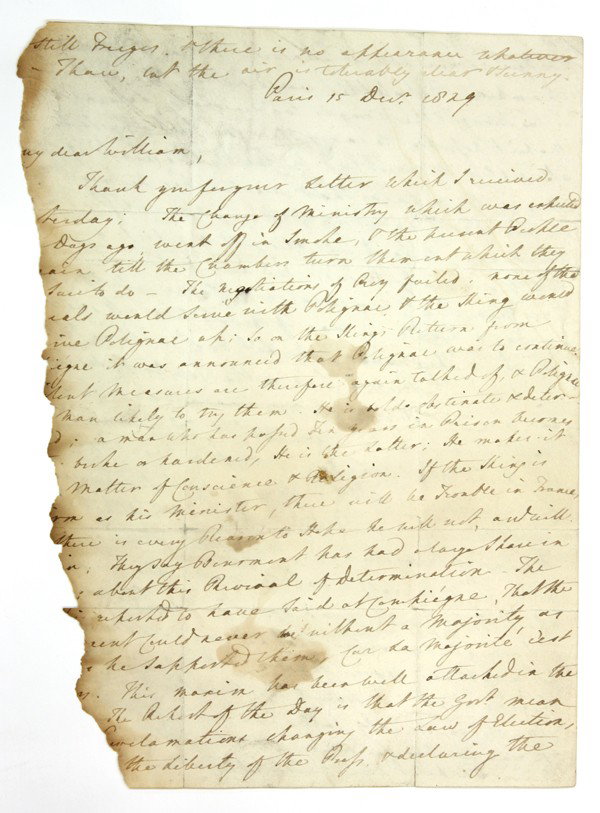 still Freezes, & there is no appearance whatever
Thaw, but the air is tolerably clear & Sunny.
Paris 15 Decr. 1829
my dear William,
Thank you for your Letter which I received
terday; The Change of Ministry which was expected
Days ago went off in Smoke, & the present People
ain till the Chambers turn them out which they
sure to do — The negotiations of failed; none of the
als would serve with Polignac & the King would
ive Polignac up; So on the King's Return from
iegne it was announced that Polignac was to continue
ent Measures are therefore again talked of, & Polignac
man likely to try them. He is bold obstinate & deter-
d; a man who has passed Ten years in Prison becomes
broke or hardened, He is the latter: He makes it
Matter of Conscience & Religion. If the King is
irm as his Minister, there will be Trouble in France,
there is every Reason to Hope he will not, and will
in; They say has had a large Share in
about this Revival of Determination. The
reported to have said at Compiégne That the
ment could never be without a Majority as
he Supported them, Car La Majorité c'est
y. This maxim has been well attacked in the
The Report of the Day is that the Govt. mean
Proclamations changing the Law of Election,
the Liberty of the Press & declaring the